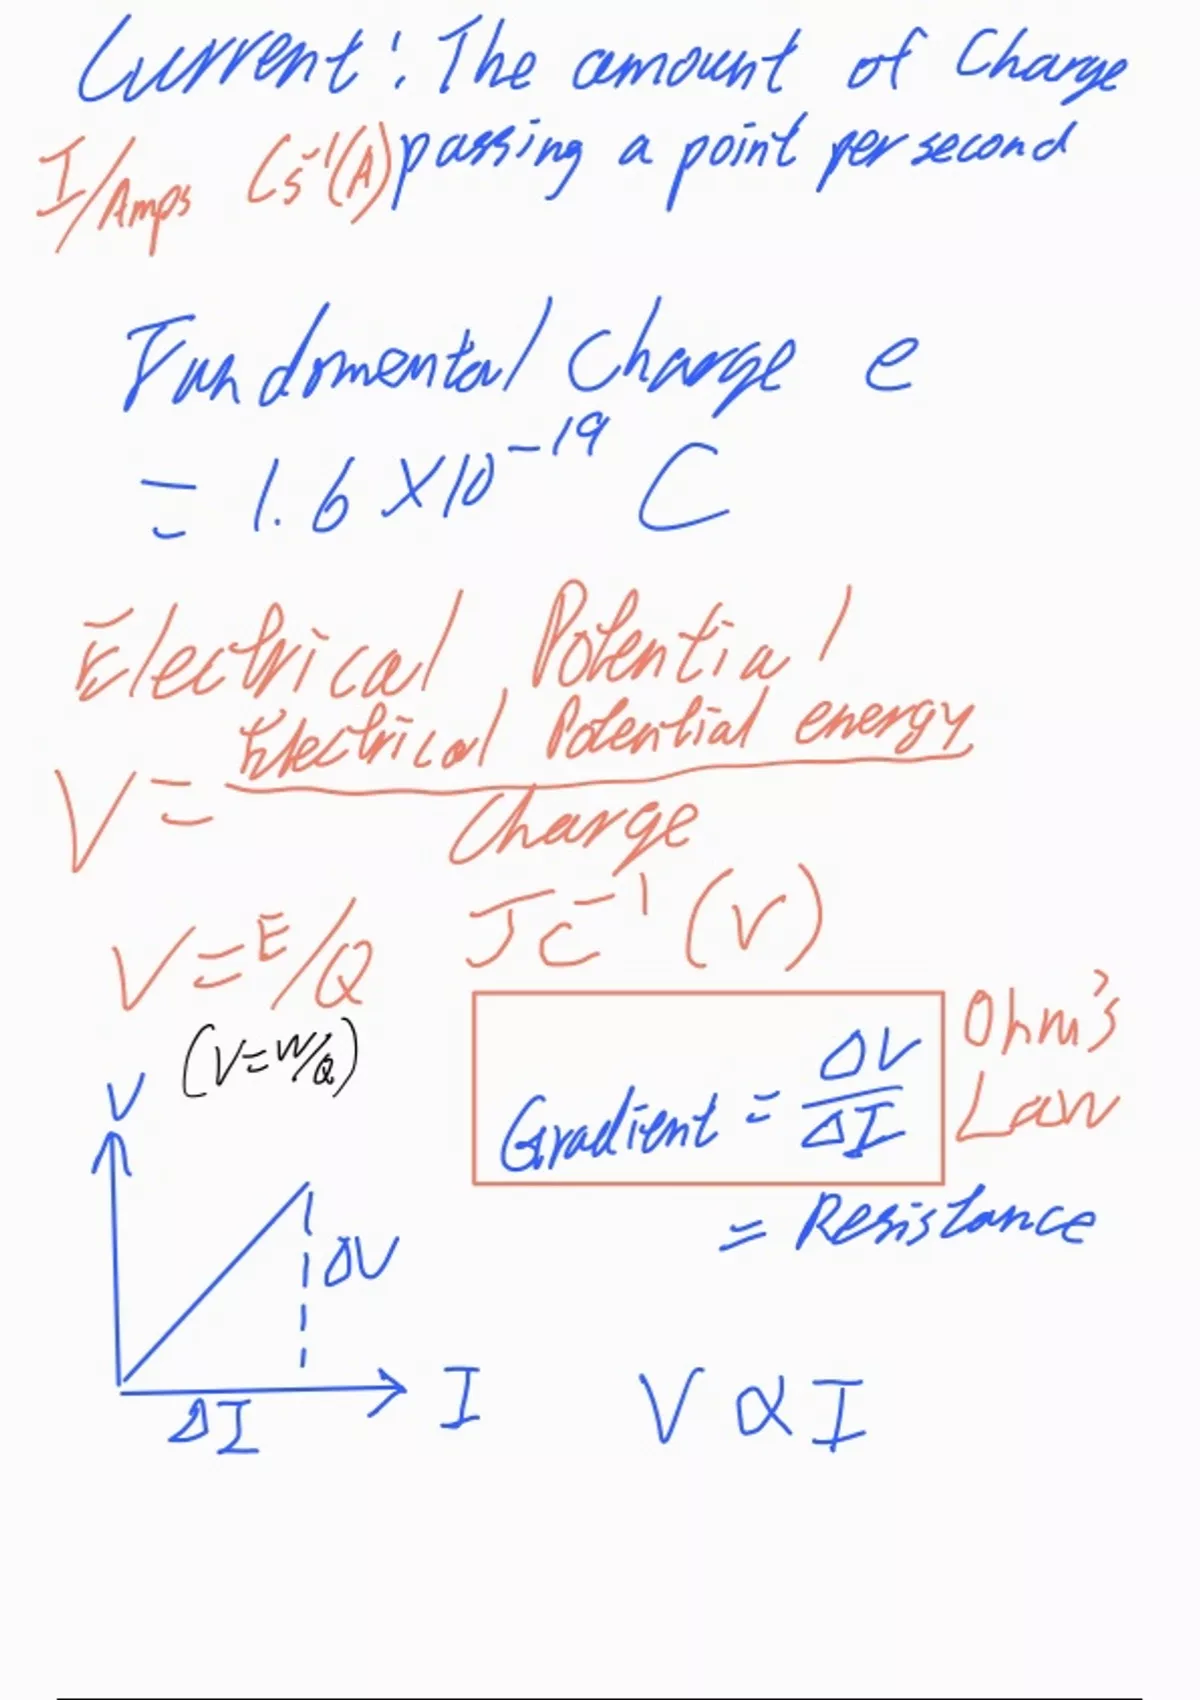 Current: The amount of Charge
I/Amps Cs⁻¹(A) passing a point per second
Fundamental Charge e
= 1.6 × 10⁻¹⁹ C
Electrical Potential
V = Electrical Potential energy / Charge
V = E/Q JC⁻¹ (V)
(V = W/Q)
Gradient = ΔV/ΔI
Ohm's
Law
= Resistance
V
ΔV
I
ΔI
V ∝ I